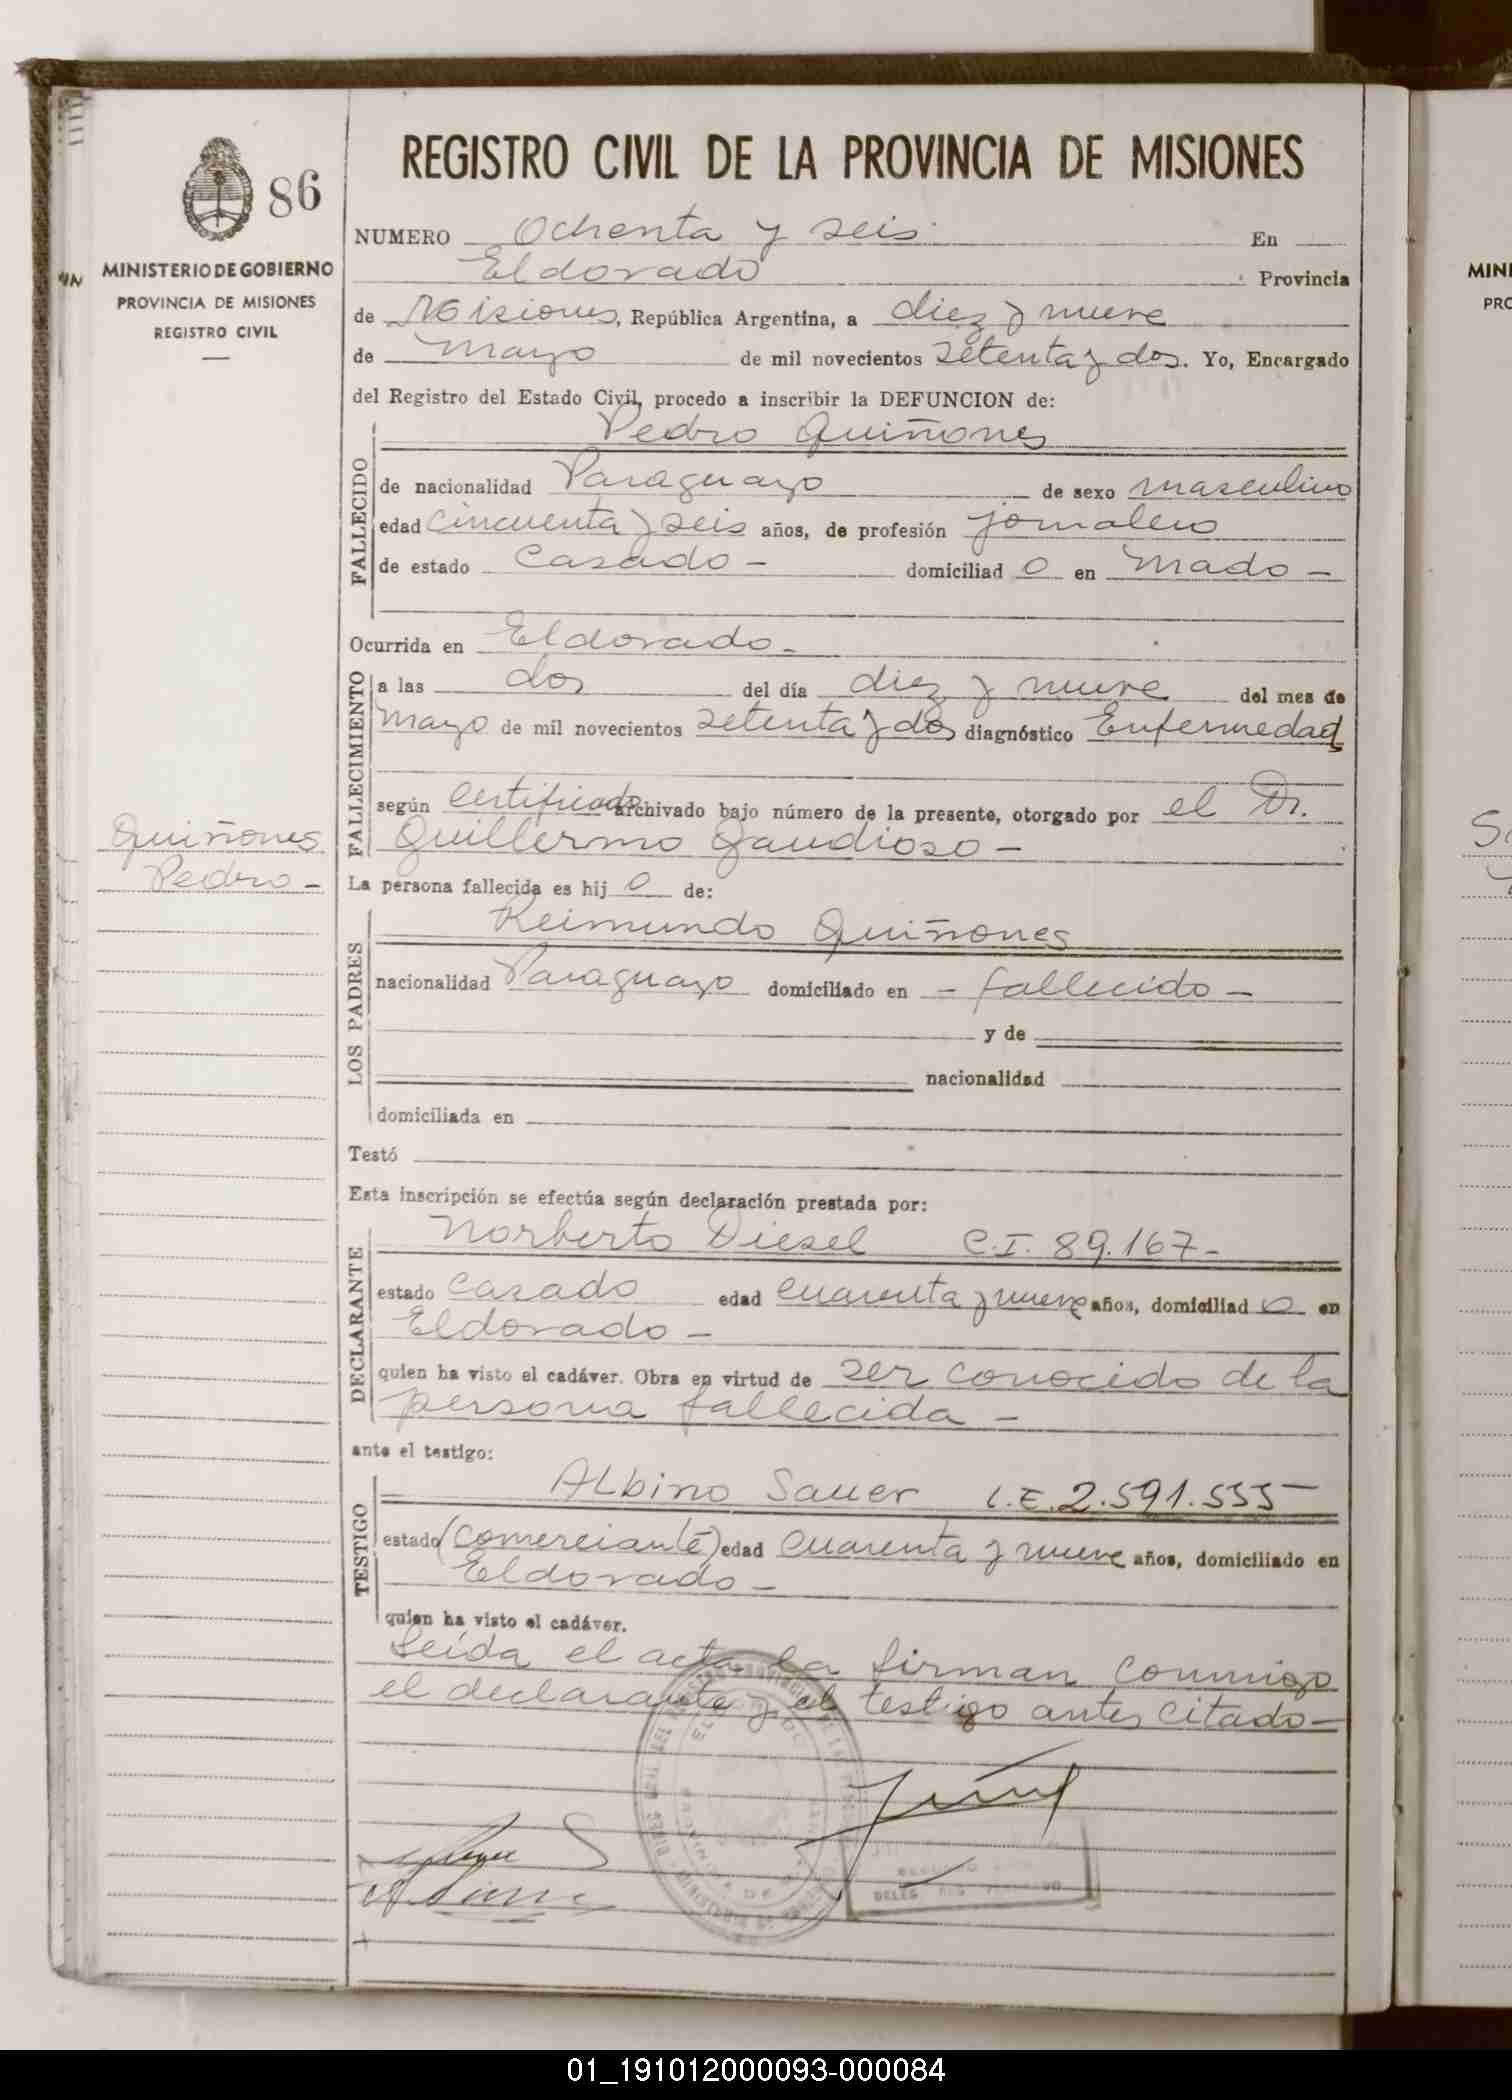 86
MINISTERIO DE GOBIERNO
PROVINCIA DE MISIONES
REGISTRO CIVIL
Quiñones
Pedro -
REGISTRO CIVIL DE LA PROVINCIA DE MISIONES
NUMERO Ochenta y seis En
Eldorado Provincia
de Misiones, República Argentina, a diez y nueve
de mayo de mil novecientos setenta y dos. Yo, Encargado
del Registro del Estado Civil, procedo a inscribir la DEFUNCION de:
Pedro Quiñones
FALLECIDO
de nacionalidad Paraguayo de sexo masculino
edad cincuenta y seis años, de profesión jornalero
de estado casado - domiciliad o en Mado -
Ocurrida en Eldorado -
FALLECIMIENTO
a las dos del día diez y nueve del mes de
mayo de mil novecientos setenta y dos diagnóstico Enfermedad
según certificado archivado bajo número de la presente, otorgado por el Dr.
Guillermo Gaudioso -
La persona fallecida es hij o de:
Reimundo Quiñones
LOS PADRES
nacionalidad Paraguayo domiciliado en - fallecido -
y de
nacionalidad
domiciliada en
Testó
Esta inscripción se efectúa según declaración prestada por:
Norberto Diesel C.I. 89.167 -
DECLARANTE
estado casado edad cuarenta y nueve años, domiciliad o en
Eldorado -
quien ha visto el cadáver. Obra en virtud de ser conocido de la
persona fallecida -
ante el testigo:
Albino Sauer L.E. 2.591.555 -
TESTIGO
estado (comerciante) edad cuarenta y nueve años, domiciliado en
Eldorado -
quien ha visto el cadáver.
Leída el acta la firman conmigo
el declarante y el testigo antes citado -
MINI
PRO
01_191012000093-000084